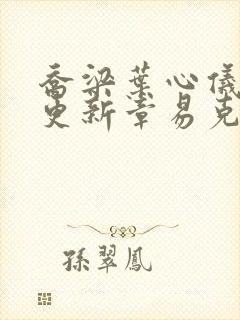 喬梁葉心儀
更新章易克
孫翠鳳